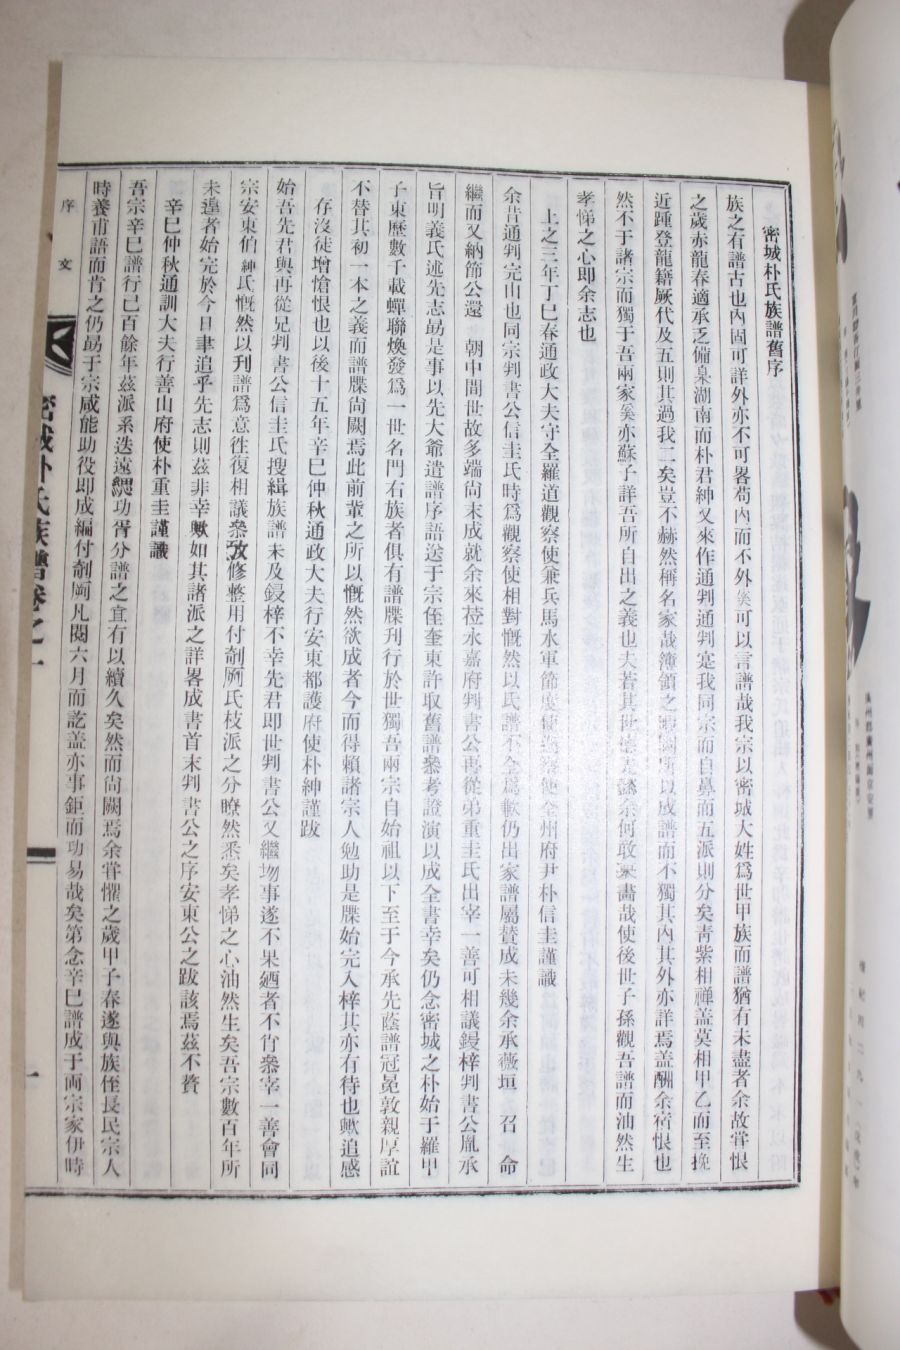 密城朴氏族譜舊序
族之有譜古也內固可詳外亦不可畧苟內而不外奚可以言譜哉我宗以密城大姓爲世甲族而譜猶有未盡者余故甞恨
之歲赤龍春適承乏備臬湖南而朴君紳又來作通判通判寔我同宗而自鼻而五派則分矣靑紫相禪盖莫相甲乙而至挽
近踵登龍籍厥代及五則其過我二矣豈不赫然稱名家哉簿領之暇圖所以成譜而不獨其內其外亦詳焉盖酬余宿恨也
然不于諸宗而獨于吾兩家奚亦蘇子詳吾所自出之義也夫若其世德之懿余何敢架畵哉使後世子孫觀吾譜而油然生
孝悌之心即余志也
上之三年丁巳春通政大夫守全羅道觀察使兼兵馬水軍節度使巡察使全州府尹朴信圭謹識
余昔通判完山也同宗判書公信圭氏時爲觀察使相對慨然以氏譜不全爲歉仍出家譜屬賛成未幾余承薇垣 召 命
繼而又納節公還 朝中間世故多端尙未成就余來莅永嘉府判書公再從弟重圭氏出宰一善可相議鋟梓判書公胤承
旨明義氏述先志勗是事以先大爺遺譜序語送于宗侄奎東許取舊譜叅考證演以成全書幸矣仍念密城之朴始于羅甲
子東歷數千載蟬聯煥發爲一世名門右族者俱有譜牒刊行於世獨吾兩宗自始祖以下至于今承先蔭譜冠冕敦親厚誼
不替其初一本之義而譜牒尙闕焉此前輩之所以慨然欲成者今而得賴諸宗人勉助是牒始完入梓其亦有待也歟追感
存沒徒增愴恨也以後十五年辛巳仲秋通政大夫行安東都護府使朴紳謹跋
始吾先君與再從兄判書公信圭氏搜緝族譜未及鋟梓不幸先君即世判書公又繼㘬事遂不果廼者不肖叅宰一善會同
宗安東伯紳氏慨然以刋譜爲意徃復相議叅攷修整用付剞劂氏枝派之分瞭然悉矣孝悌之心油然生矣吾宗數百年所
未遑者始完於今日聿追乎先志則茲非幸歟如其諸派之詳畧成書首末判書公之序安東公之跋該焉茲不贅
辛巳仲秋通訓大夫行善山府使朴重圭謹識
吾宗辛巳譜行已百餘年茲派系迭遠緦功胥分譜之宜有以續久矣然而尙闕焉余甞懼之歲甲子春遂與族侄長民宗人
時養甫語而肯之仍勗于宗咸能助役即成編付剞劂凡閱六月而訖盖亦事鉅而功易哉矣第念辛巳譜成于両宗家伊時
序文
密城朴氏族譜卷之一
一